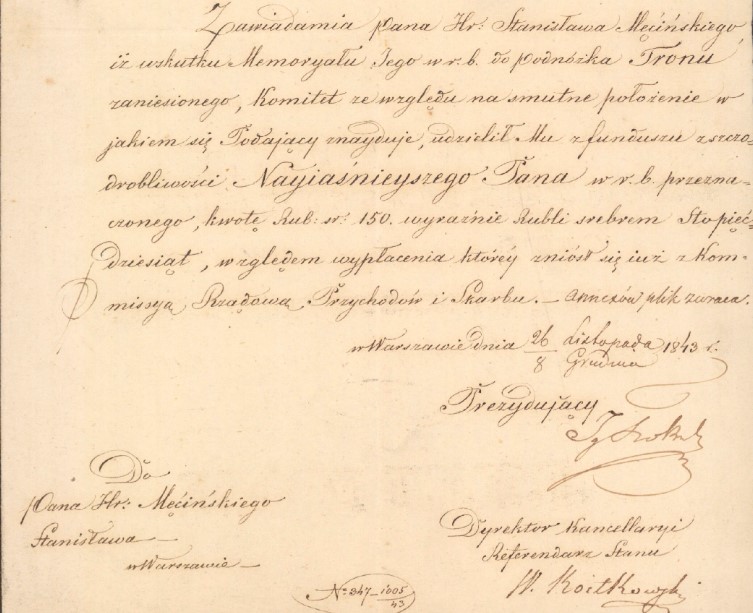 Zawiadamia Pana Hr: Stanisława Męcińskiego
iż wskutku Memoryału Jego w r. b. do podnóżka Tronu
zaniesionego, Komitet ze względu na smutne położenie w
jakiem się Podający znayduje, udzielił Mu z funduszu z szczo-
drobliwości Nayiaśnieyszego Pana w r. b. przezna-
czonego, kwotę Rub: sr: 150. wyraźnie Rubli srebrem Stopięć-
dziesiąt, względem wypłacenia któréy zniósł się iuż z Kom-
missyą Rządową Przychodów i Skarbu. — annexów plik zwraca.
w Warszawie dnia 26/8 Listopada/Grudnia 1843 r.
Prezydujący
Do
Pana Hr: Męcińskiego
Stanisława —
w Warszawie —
Dyrektor Kancellaryi
Referendarz Stanu
W.
No 847 – 1005/43